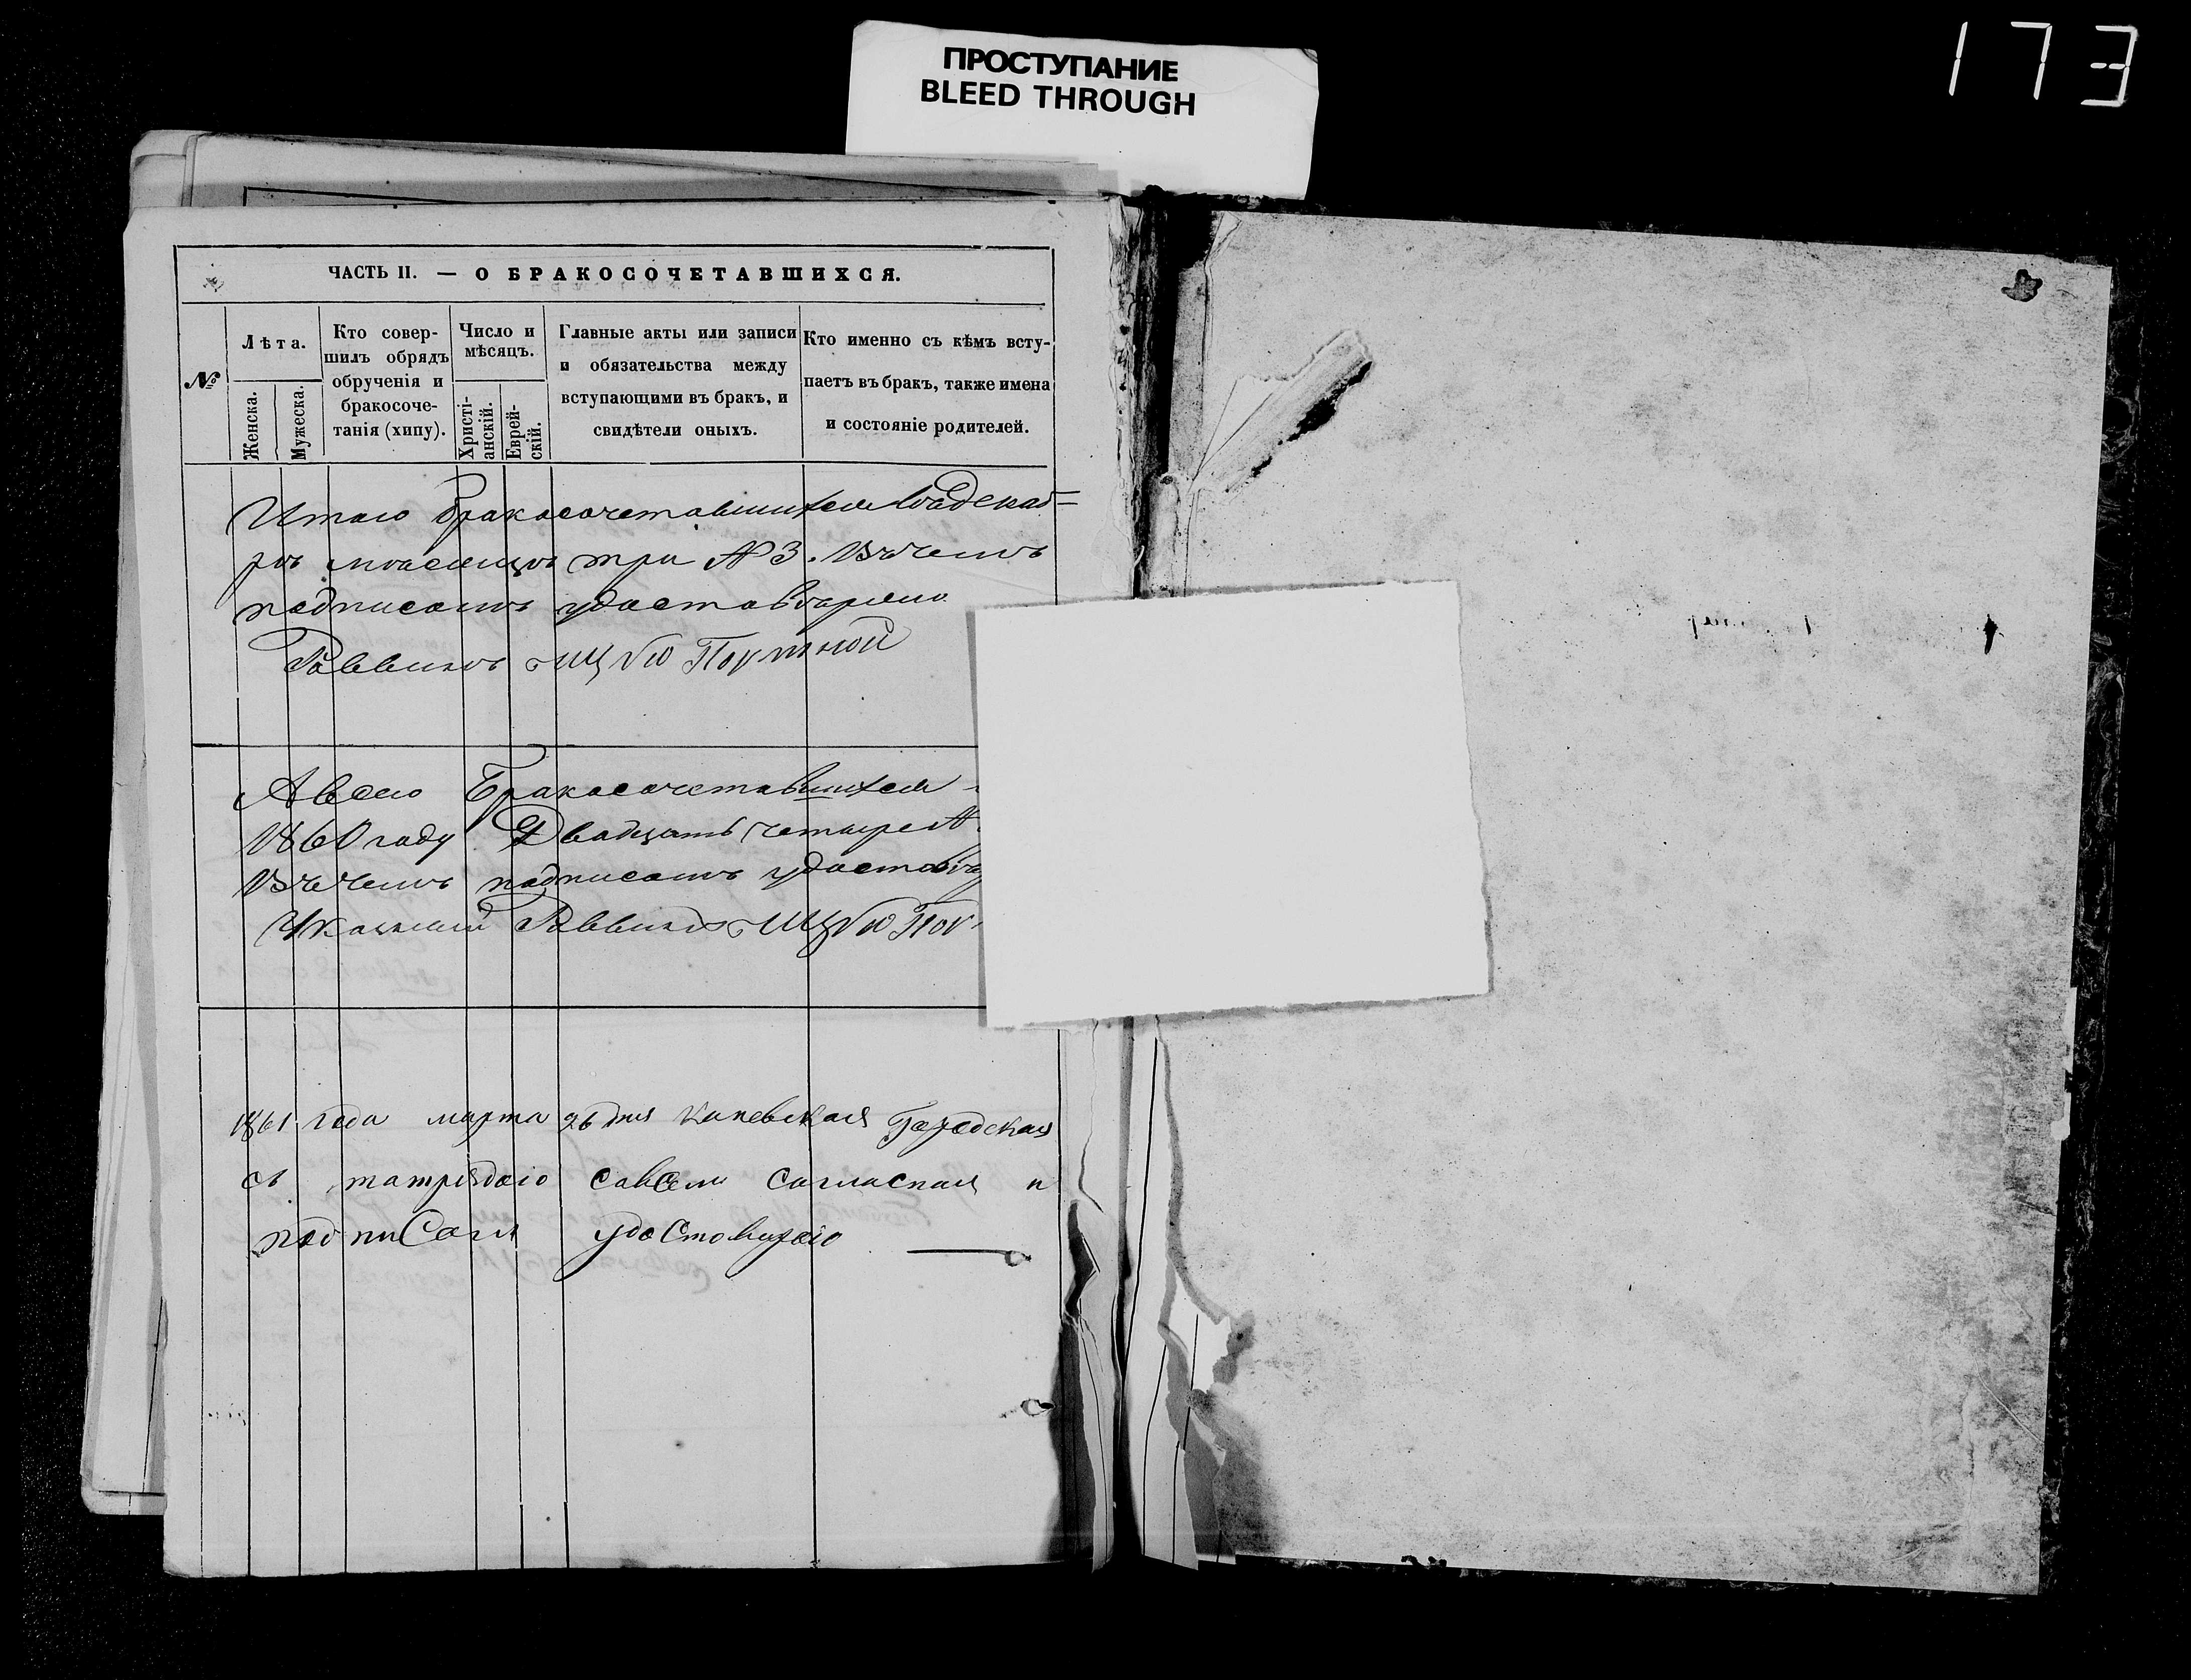 ПРОСТУПАНИЕ
BLEED THROUGH
173
ЧАСТЬ II. — О БРАКОСОЧЕТАВШИХСЯ.
№
Лѣта.
Женска.
Мужеска.
Кто совер-
шилъ обрядъ
обрученія и
бракосоче-
танія (хипу).
Число и
мѣсяцъ.
Христі-
анскій.
Еврей-
скій.
Главные акты или записи
и обязательства между
вступающими въ бракъ, и
свидѣтели оныхъ.
Кто именно съ кѣмъ всту-
паетъ въ бракъ, также имена
и состояніе родителей.
Итого бракосочетавшихся въ декаб=
рѣ мѣсецѣ три № 3. Въ чемъ
подписомъ удоставѣряю
Раввинъ Портной
А всего Бракосочетавшихся
1860 году Двадцать четыре
Въ чемъ подписомъ удоставѣ
Раввинъ Пор
1861 года марта 26 дня Каневская Городская
съ совсем согласная и
под писом удостовиряю